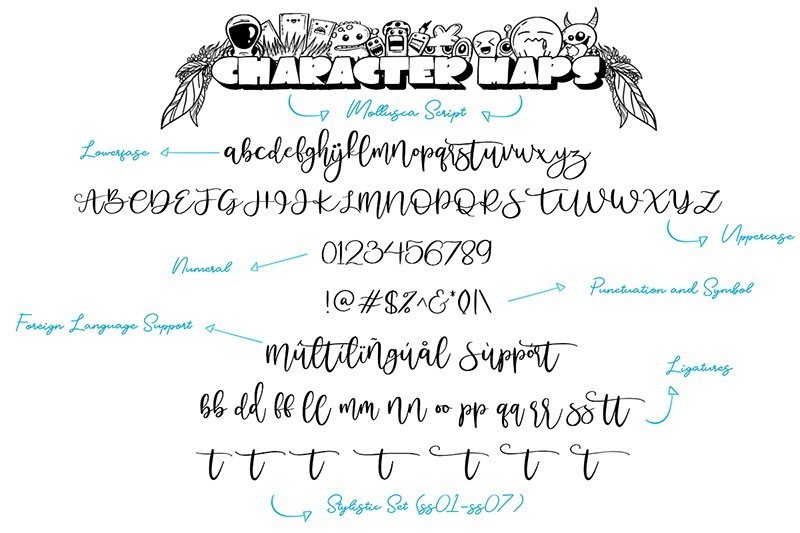 CHARACTER MAPS
Mollusca Script
Lowerfase
abcdefghijklmnopqrstuvwxyz
ABCDEFGHIJKLMNOPQRSTUVWXYZ
Uppercase
0123456789
Numeral
!@#$%^&*()|\
Punctuation and Symbol
Foreign Language Support
múltílïñgúål Sùppört
Ligatures
bb dd ff ll mm nn oo pp qq rr ss tt
t t t t t t t
Stylistic Set (ss01-ss07)